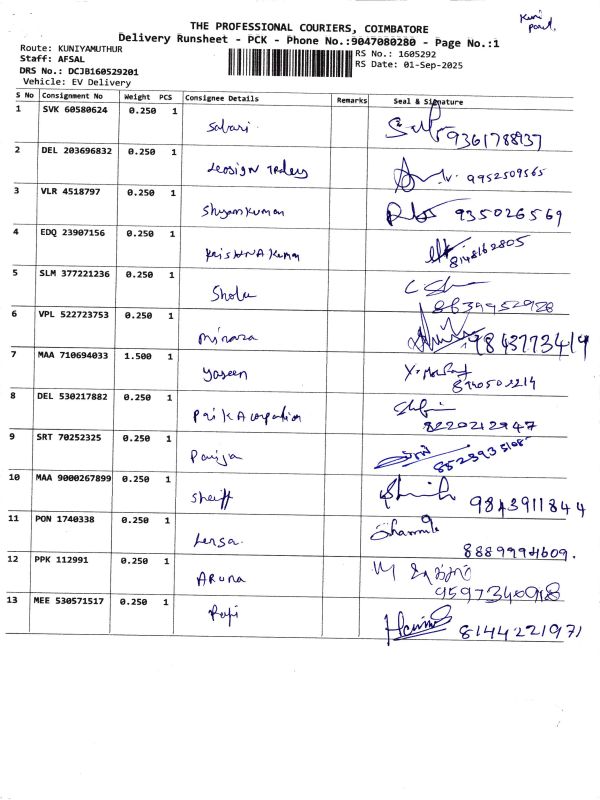 Kuni
THE PROFESSIONAL COURIERS, COIMBATORE
Delivery Runsheet - PCK - Phone No.:9047080280 - Page No.:1
Route: KUNIYAMUTHUR
Staff: AFSAL
DRS No.: DCJB160529201
Vehicle: EV Delivery
RS No.: 1605292
RS Date: 01-Sep-2025
S No Consignment No Weight PCS Consignee Details Remarks Seal & Signature
1 SVK 60580624 0.250 1 Sabari. 9361788937
2 DEL 203696832 0.250 1 Leosign Traders 9952509565
3 VLR 4518797 0.250 1 Shyamkumar 935026569
4 EDQ 23907156 0.250 1 KRISHNA Kumar 8148162805
5 SLM 377221236 0.250 1 8639952928
6 VPL 522723753 0.250 1 9843773414
7 MAA 710694033 1.500 1 yaseen
8 DEL 530217882 0.250 1 8220212947
9 SRT 70252325 0.250 1
10 MAA 9000267899 0.250 1 Sheriff 9843911844
11 PON 1740338 0.250 1
12 PPK 112991 0.250 1 ARUNA 9597340918
13 MEE 530571517 0.250 1 8144221971